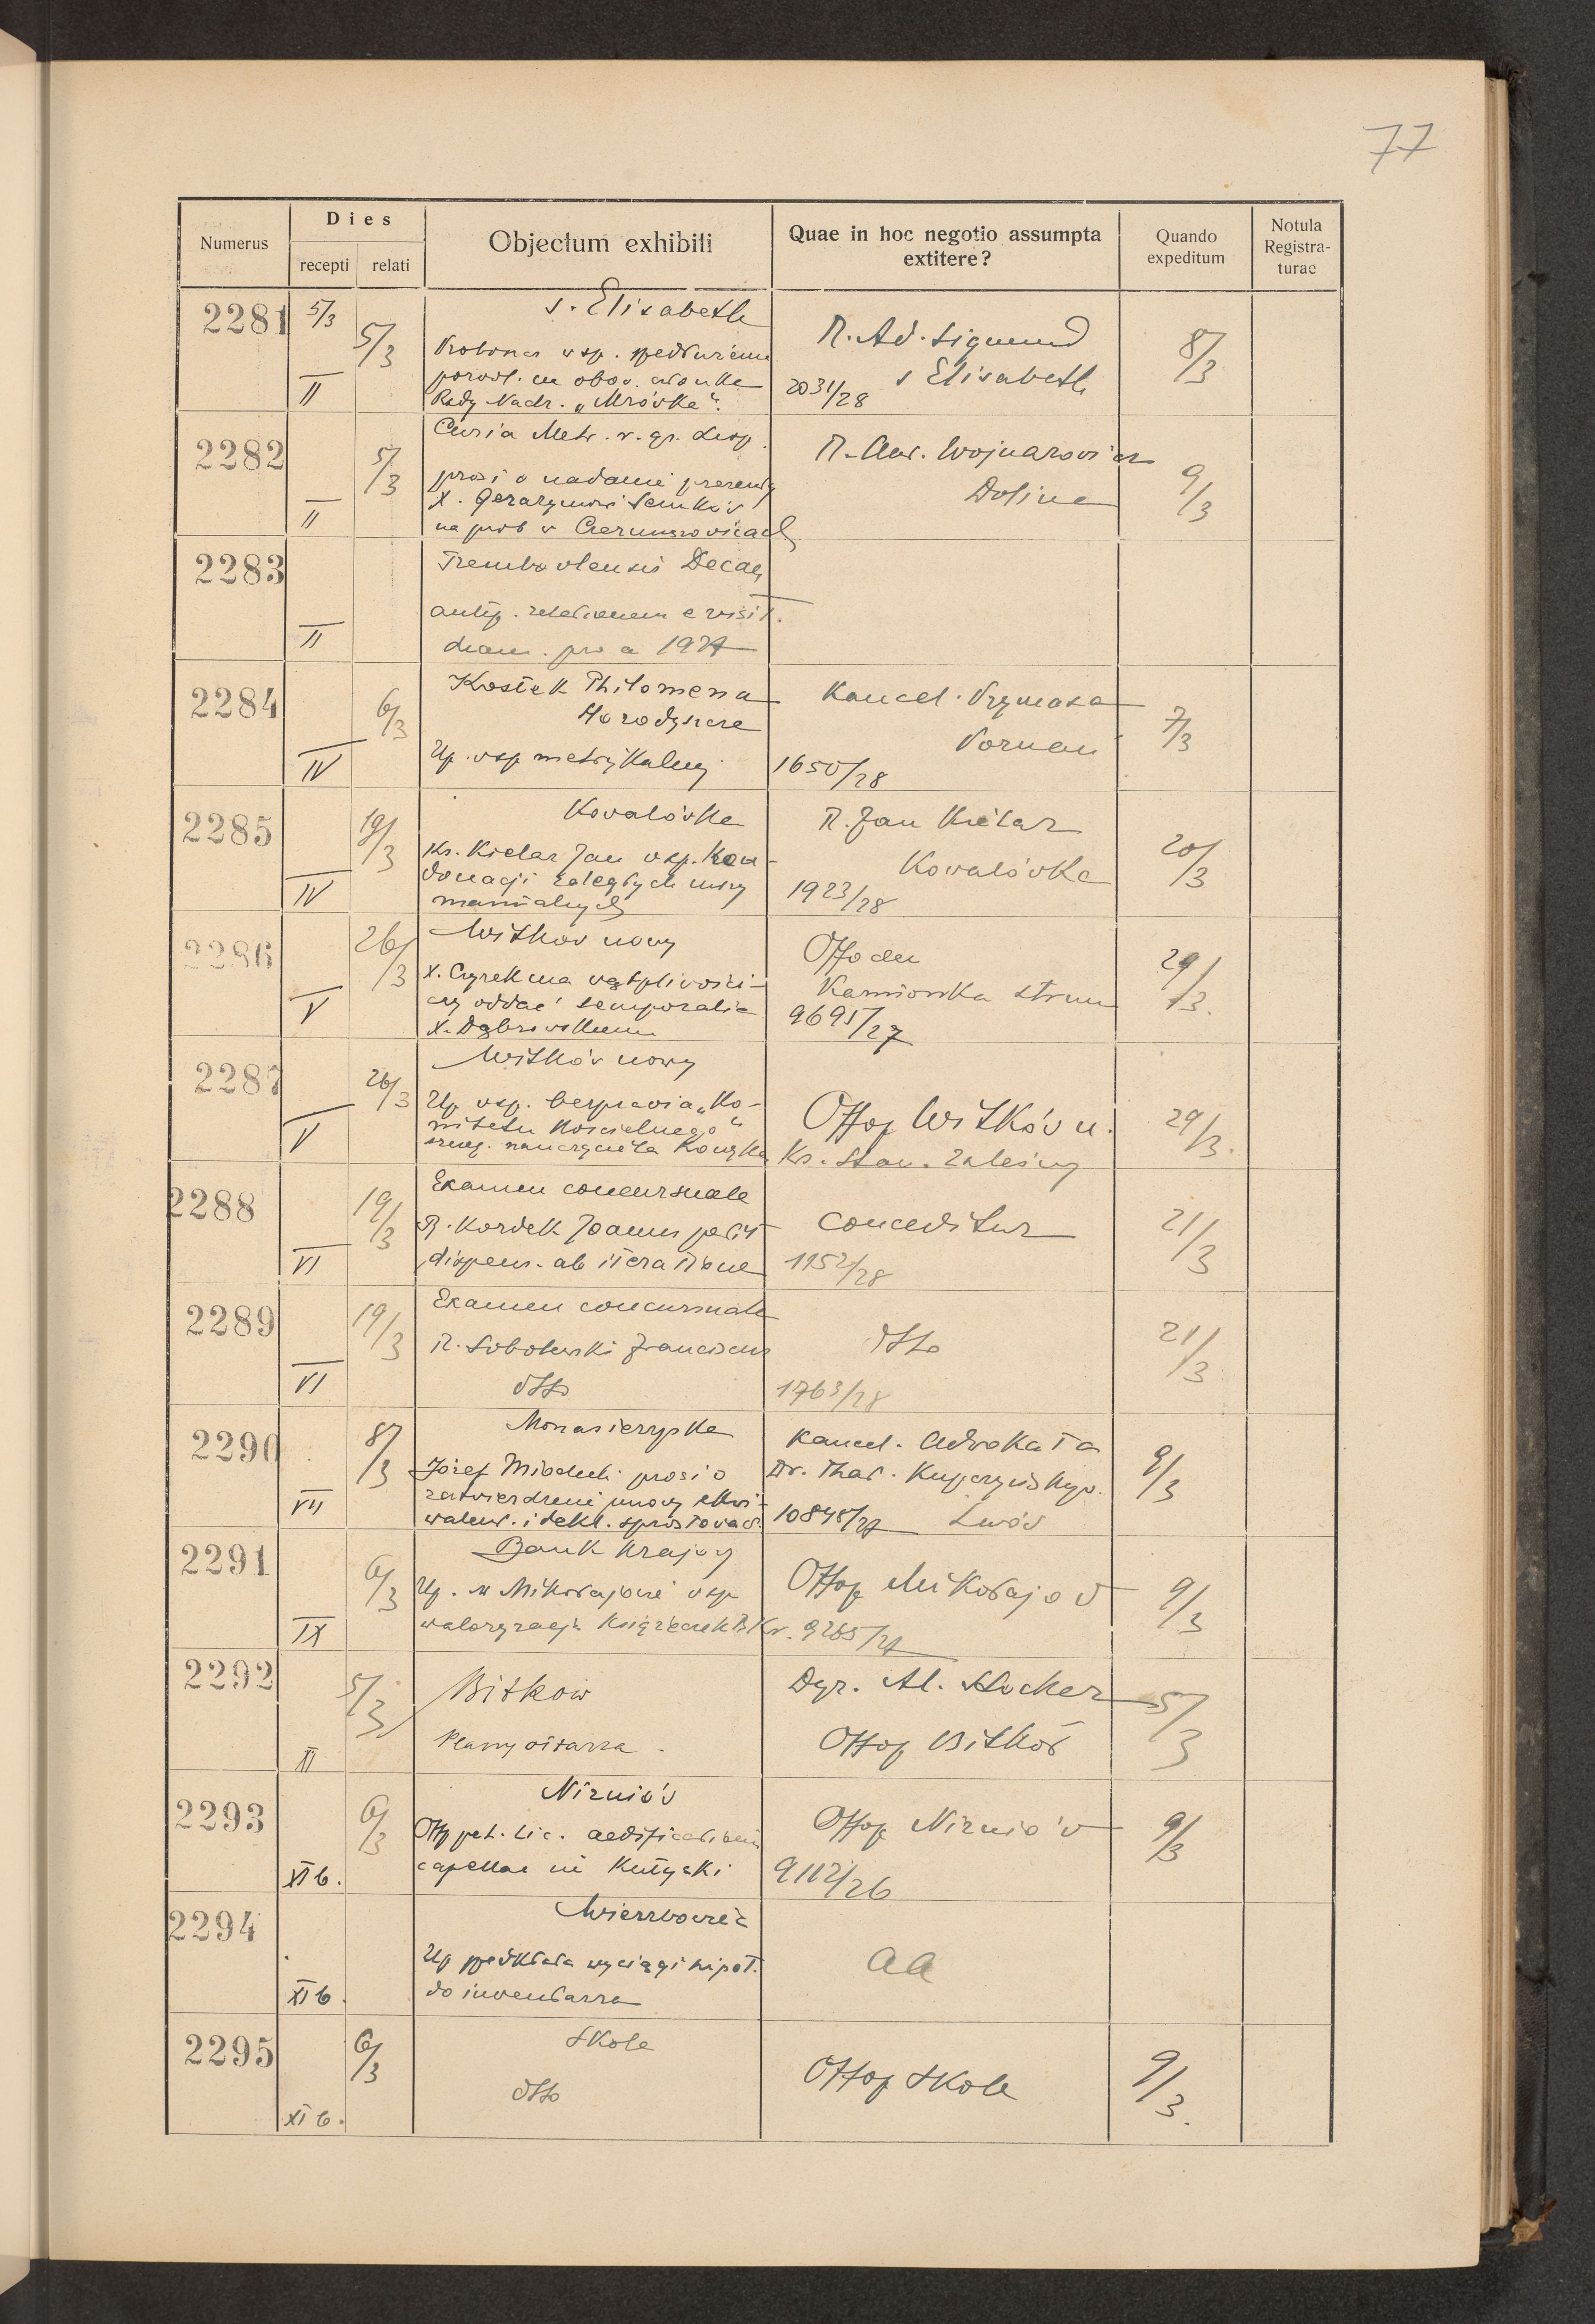 77
Numerus
Dies
recepti relati
Objectum exhibiti
Quae in hoc negotio assumpta
extitere?
Quando
expeditum
Notula
Registra-
turae
2281 5/3 II 5/3
s. Elisabeth
Proboszcz wsp.
na obow. członka
Rady Nadz. „Mrówka".
R. Ad. Sigmund
s Elisabeth
2031/28
8/3
2282 II 5/3
Curia Metr. r. gr. Leop.
prosi o nadanie prezenty
X. Gerazymowi
na prob w
R. Ant. Wojnarowicz
Dolina
9/3
2283 II
Trembowlensis Decan
relationem e visit.
decan. pro a 1927
2284 IV 6/3
Kostek Philomena
Horodyszcze
Up. wsp metrykalnej
Kancel. Prymasa
Poznań
1650/28
7/3
2285 IV 19/3
Kowalówka
Ks. Kielar Jan wsp. kon-
donacji zaległych mszy
manualnych
R. Jan Kielar
Kowalówka
1923/28
20/3
2286 V 26/3
Witków nowy
X. Czyrek ma wątpliwości
czy oddać temporalia
X. Dąbrowskiemu
Offo den
Kamionka strum
9695/27
29/3.
2287 V 26/3
Witków nowy
Up wsp. bezprawia „Ko-
mitetu Kościelnego"
szczeg. nauczyciela
Offop Witków n.
Ks. Stan. Zaleśny
29/3.
2288 VI 19/3
Examen concursuale
R. Kordek Joannes petit
dispens. ab iteratione
conceditur
1152/28
21/3
2289 VI 19/3
Examen concursuale
R. Sobolewski Franciscus
dtto
dtto
1763/28
21/3
2290 VII 8/3
Monasterzyska
Józef prosi o
zatwierdzenie umowy ekwi-
walent. i dekl. sprostowac.
Kancel. Adwokata
Dr. Thad. Kupczyńskiego.
10848/27 Lwów
9/3
2291 IX 6/3
Bank Krajowy
Up. w Mikołajowie wsp
waloryzacji książeczek B. Kr. 9285/27
Offop Mikołajow
9/3
2292 XI 5/3
Bitkow
Plany ołtarza
Dyr. Al. Stocker
Offop Bitków
5/3
2293 XI b. 6/3
Niżniów
Offop pet. lic. aedificationis
capellae in Kutyski
Offop Niżniów
9112/26
9/3
2294 XI b.
Wierzbowiec
Up przedkłada wyciągi hipot.
do inwentarza
aa
2295 XI b. 6/3
Skole
dtto
Offop Skole
9/3.